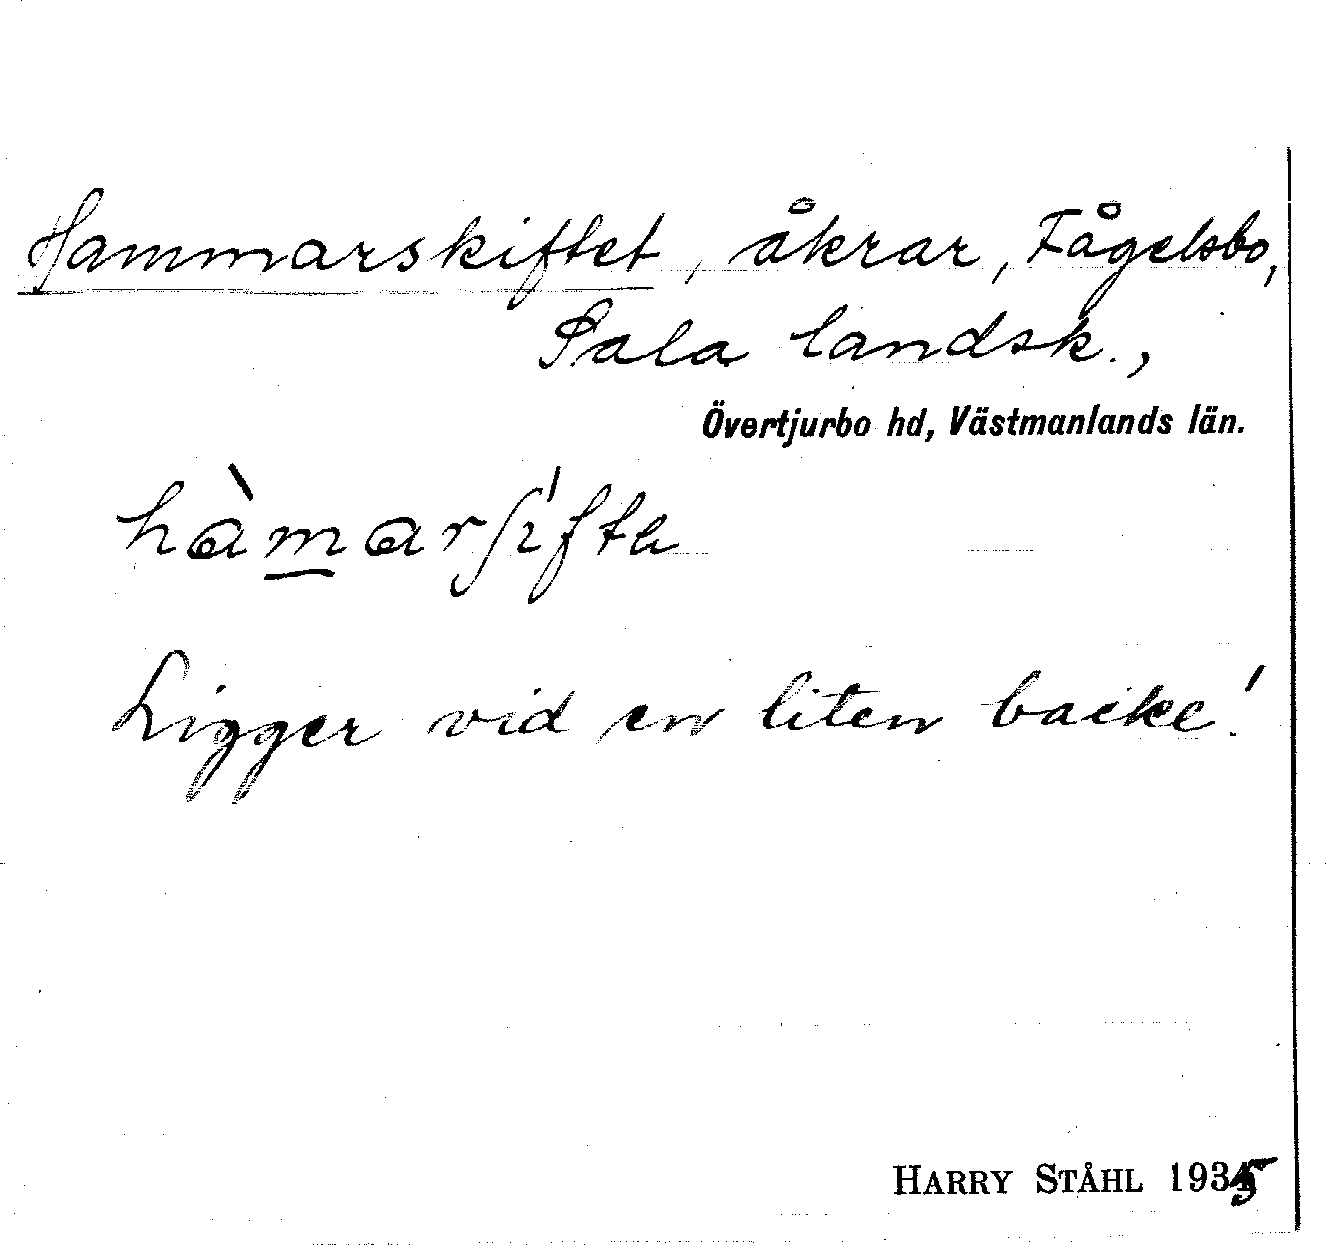 Hammarskiftet, åkrar, Fågelsbo,
Sala landsk.,
Övertjurbo hd, Västmanlands län.
Ligger vid en liten backe!
HARRY STÅHL 1935